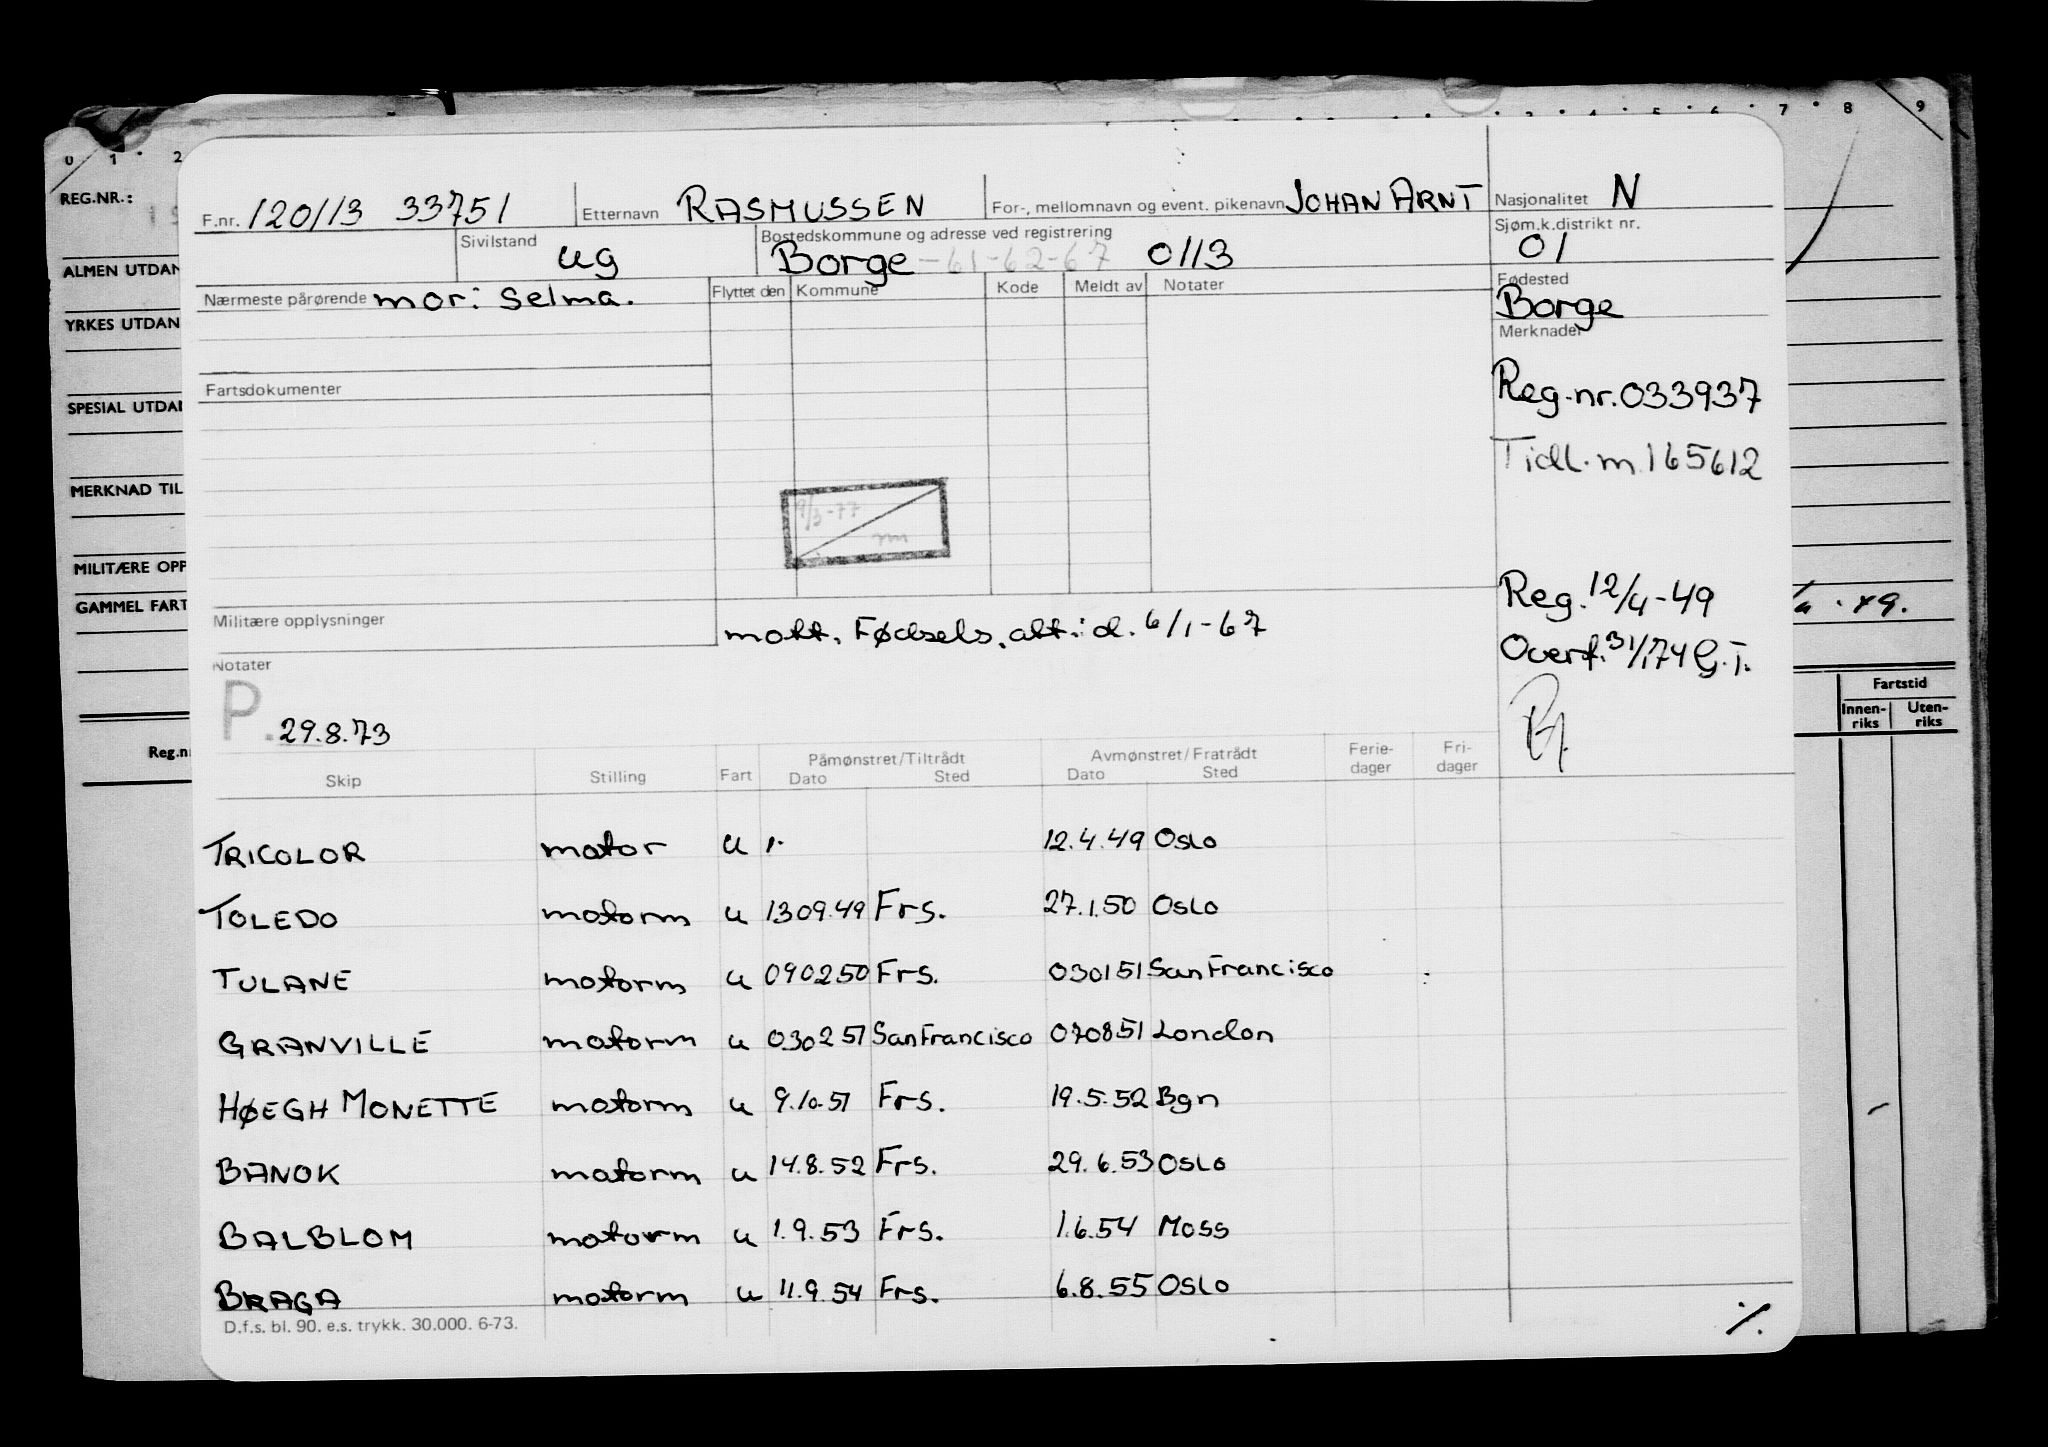 0 1 2 3 4 5 6 7 8 9
REG.NR.:
ALMEN UTDAN
YRKES UTDAN
SPESIAL UTDAN
MERKNAD TIL
MILITÆRE OPP
GAMMEL FART
Reg.n
Fartstid
Innen-riks Uten-riks
F.nr. 120113 33751 Etternavn RASMUSSEN For-, mellomnavn og event. pikenavn JOHAN ARNT Nasjonalitet N
Sivilstand ug Bostedskommune og adresse ved registrering Borge -61-62-67 0113 Sjøm.k.distrikt nr. 01
Nærmeste pårørende mor: Selma. Flyttet den Kommune Kode Meldt av Notater Fødested Borge
Merknader
Fartsdokumenter
Reg.nr. 033937
Tidl. m 165612
9/3-77
rm
Reg. 12/4-49
Militære opplysninger mott. Fødsels.att. d. 6/1-67
Overf. 31/1 74 G.T.
Notater
P. 29.8.73
Skip Stilling Fart Påmønstret/Tiltrådt Dato Sted Avmønstret/Fratrådt Dato Sted Ferie-dager Fri-dager
TRICOLOR motor u 1. 12.4.49 Oslo
TOLEDO motorm u 130949 Frs. 27.1.50 Oslo
TULANE motorm u 090250 Frs. 030151 San Francisco
GRANVILLE motorm u 030251 San Francisco 070851 London
HØEGH MONETTE motorm u 9.10.51 Frs. 19.5.52 Bgn
BANOK motorm u 14.8.52 Frs. 29.6.53 Oslo
BALBLOM motorm u 1.9.53 Frs. 1.6.54 Moss
BRAGA motorm u 11.9.54 Frs. 6.8.55 Oslo
D.f.s. bl. 90. e.s. trykk. 30.000. 6-73.